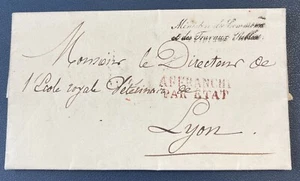 Ministère du Commerce
et des Travaux Publics
Monsieur le Directeur de
l'Ecole royale Vétérinaire de
AFFRANCHI
PAR ETAT
Lyon.